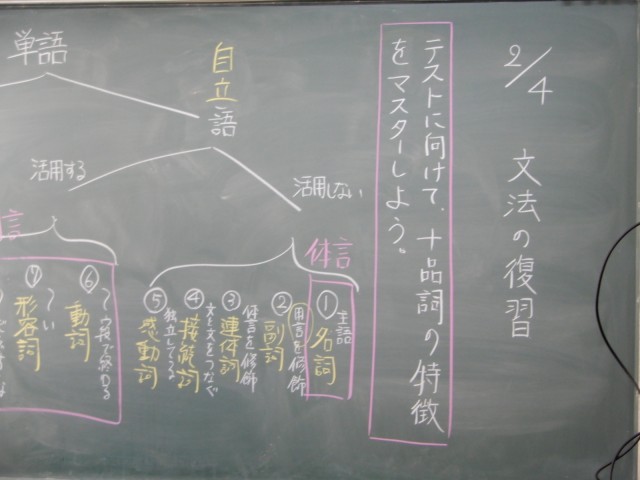 2/4 文法の復習
テストに向けて、十品詞の特徴
をマスターしよう。
単語
自立語
活用しない
活用する
体言
言
①名詞
主語
②副詞
用言を修飾
③連体詞
体言を修飾
④接続詞
文と文をつなぐ
⑤感動詞
独立してる
⑥動詞
⑦形容詞
〜い